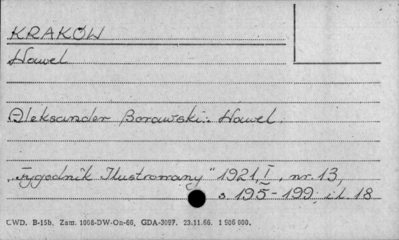 KRAKÓW
Wawel
Aleksander Borawski: Wawel.
"Tygodnik Ilustrowany" 1921, I, nr. 13,
s. 195-199; il. 18
CWD. B-15b. Zam. 1008-DW-On-66, GDA-3097. 23.11.66. 1 506 000.